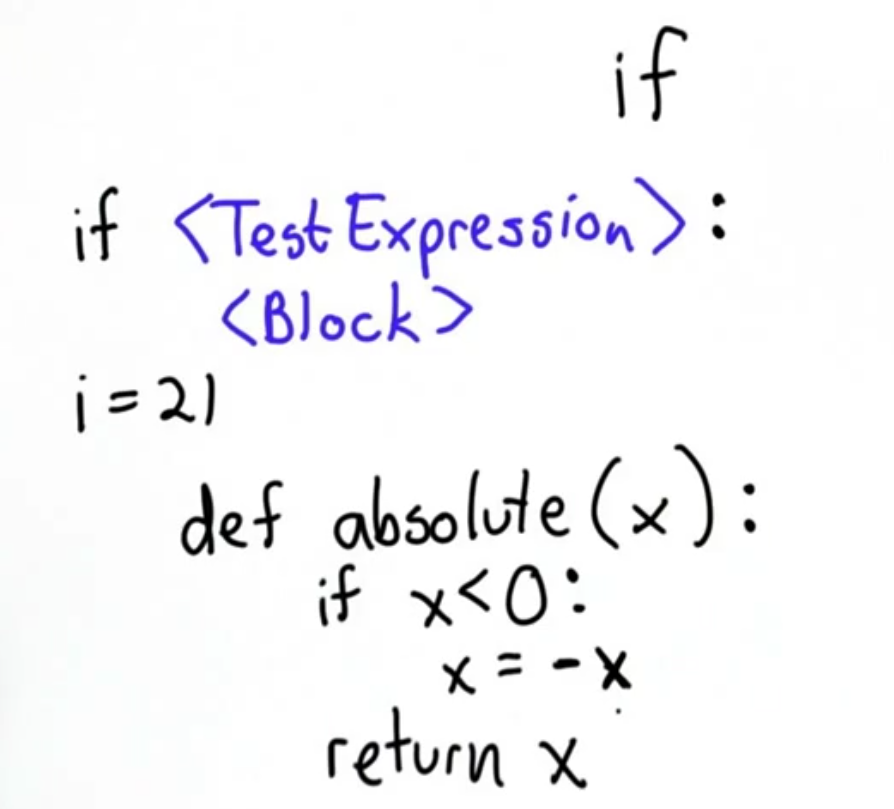 if
if <TestExpression>:
<Block>
i = 21
def absolute(x):
if x<0:
x = -x
return x